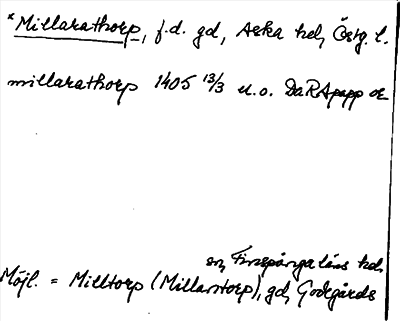 *Millarathorp, f.d. gd, Aska hd, Östg. l.
millarathorp 1405 13/3 u.o. DaRA papp or
Möjl. = Milltorp (Millarstorp), gd, Godegårds
sn, Finspånga läns hd.